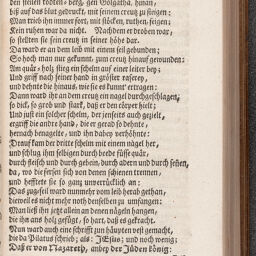 den steilen todten-berg, gen Golgatha, hinan,
biß auf das blut gedruckt, mit seinem creutz zu steigen:
Man trieb ihn immer fort, mit stöcken, ruthen, feigen;
Kein ruhen war da nicht. Nachdem er droben war,
so stellten sie sein creutz in seiner höhe dar.
Da ward er an dem leib mit einem seil gebunden;
So hoch man nur gekunnt, zum creutz hinauf gewunden:
Am quär-holtz stieg ein schelm auf einer leiter bey;
Und griff nach seiner hand in größter raserey,
und dehnte die hinaus, wie sie es kunnt' ertragen:
Dann ward ihr an dem creutz ein nagel durchgeschlagen,
so dick, so grob und starck, daß er den cörper hielt;
Und just ein solcher schelm, der jenseits auch gezielt,
ergriff die andre hand, die er gerad so dehnte,
hernach benagelte, und ihn dabey verhöhnte:
Drauf kam der dritte schelm mit einem nagel her,
und schlug ihm selbigen durch beede füsse quär,
durch fleisch und durch gebein, durch adern und durch sehnen,
da, wo die fersen sich von denen schienen trennen,
und hefftete sie so gantz unverrücklich an:
Das zug-seil ward nunmehr vom leib herab gethan,
dieweil es nicht mehr noth denselben zu umfangen:
Man ließ ihn jetzt allein an denen nägeln hangen,
die ihn ans holtz gefügt, so hart, daß es gekracht.
Nun ward auch eine schrifft zun häupten vest gemacht,
die da Pilatus schrieb; als: JEsus; und noch wenig;
Daß er von Nazareth, anbey der Jüden könig: